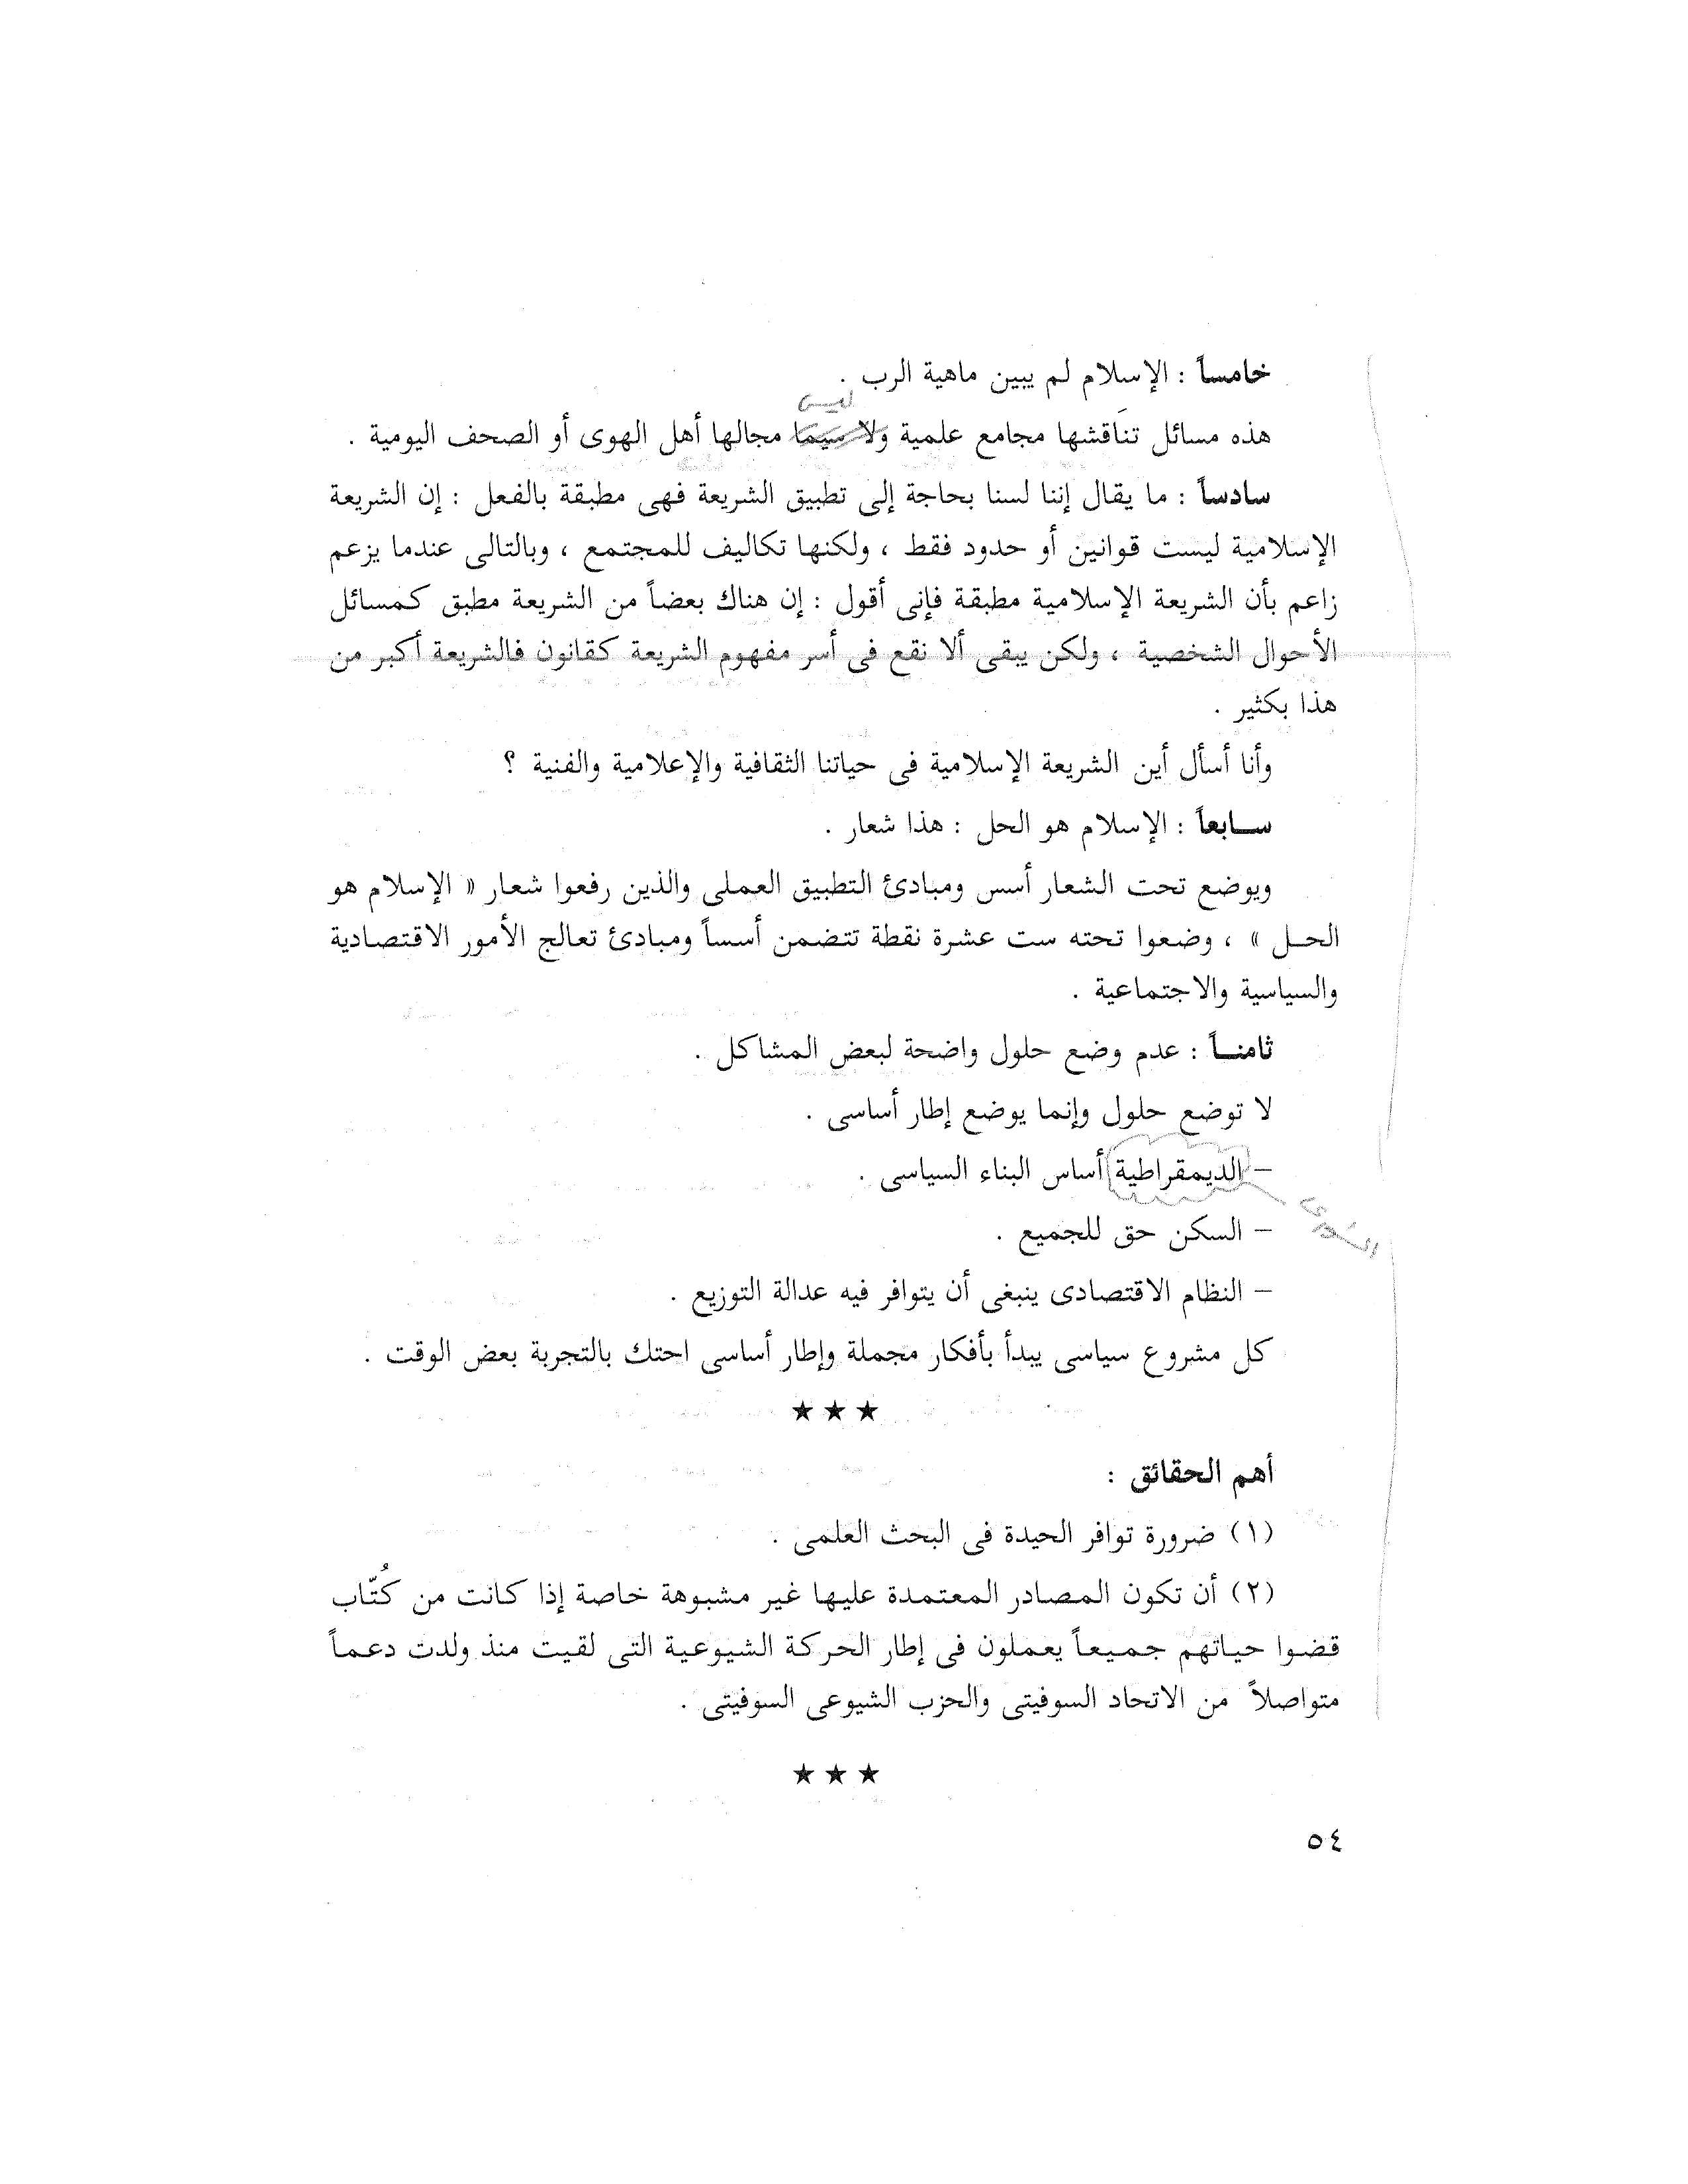 خامساً : الإسلام لم يبين ماهية الرب .
ليس
هذه مسائل تناقشها مجامع علمية ولا سيما مجالها أهل الهوى أو الصحف اليومية .
سادساً : ما يقال إننا لسنا بحاجة إلى تطبيق الشريعة فهى مطبقة بالفعل : إن الشريعة
الإسلامية ليست قوانين أو حدود فقط ، ولكنها تكاليف للمجتمع ، وبالتالى عندما يزعم
زاعم بأن الشريعة الإسلامية مطبقة فإنى أقول : إن هناك بعضاً من الشريعة مطبق كمسائل
الأحوال الشخصية ، ولكن يبقى ألا نقع فى أسر مفهوم الشريعة كقانون فالشريعة أكبر من
هذا بكثير .
وأنا أسأل أين الشريعة الإسلامية فى حياتنا الثقافية والإعلامية والفنية ؟
سـابعاً : الإسلام هو الحل : هذا شعار .
ويوضع تحت الشعار أسس ومبادئ التطبيق العملى والذين رفعوا شعار « الإسلام هو
الحـل » ، وضعوا تحته ست عشرة نقطة تتضمن أسساً ومبادئ تعالج الأمور الاقتصادية
والسياسية والاجتماعية .
ثامنـاً : عدم وضع حلول واضحة لبعض المشاكل .
لا توضع حلول وإنما يوضع إطار أساسى .
– الديمقراطية أساس البناء السياسى .
الشورى
– السكن حق للجميع .
– النظام الاقتصادى ينبغى أن يتوافر فيه عدالة التوزيع .
كل مشروع سياسى يبدأ بأفكار مجملة وإطار أساسى احتك بالتجربة بعض الوقت .
★ ★ ★
أهم الحقائق :
(١) ضرورة توافر الحيدة فى البحث العلمى .
(٢) أن تكون المصادر المعتمدة عليها غير مشبوهة خاصة إذا كانت من كُتّاب
قضوا حياتهم جميعاً يعملون فى إطار الحركة الشيوعية التى لقيت منذ ولدت دعماً
متواصلاً من الاتحاد السوفيتى والحزب الشيوعى السوفيتى .
★ ★ ★
٥٤